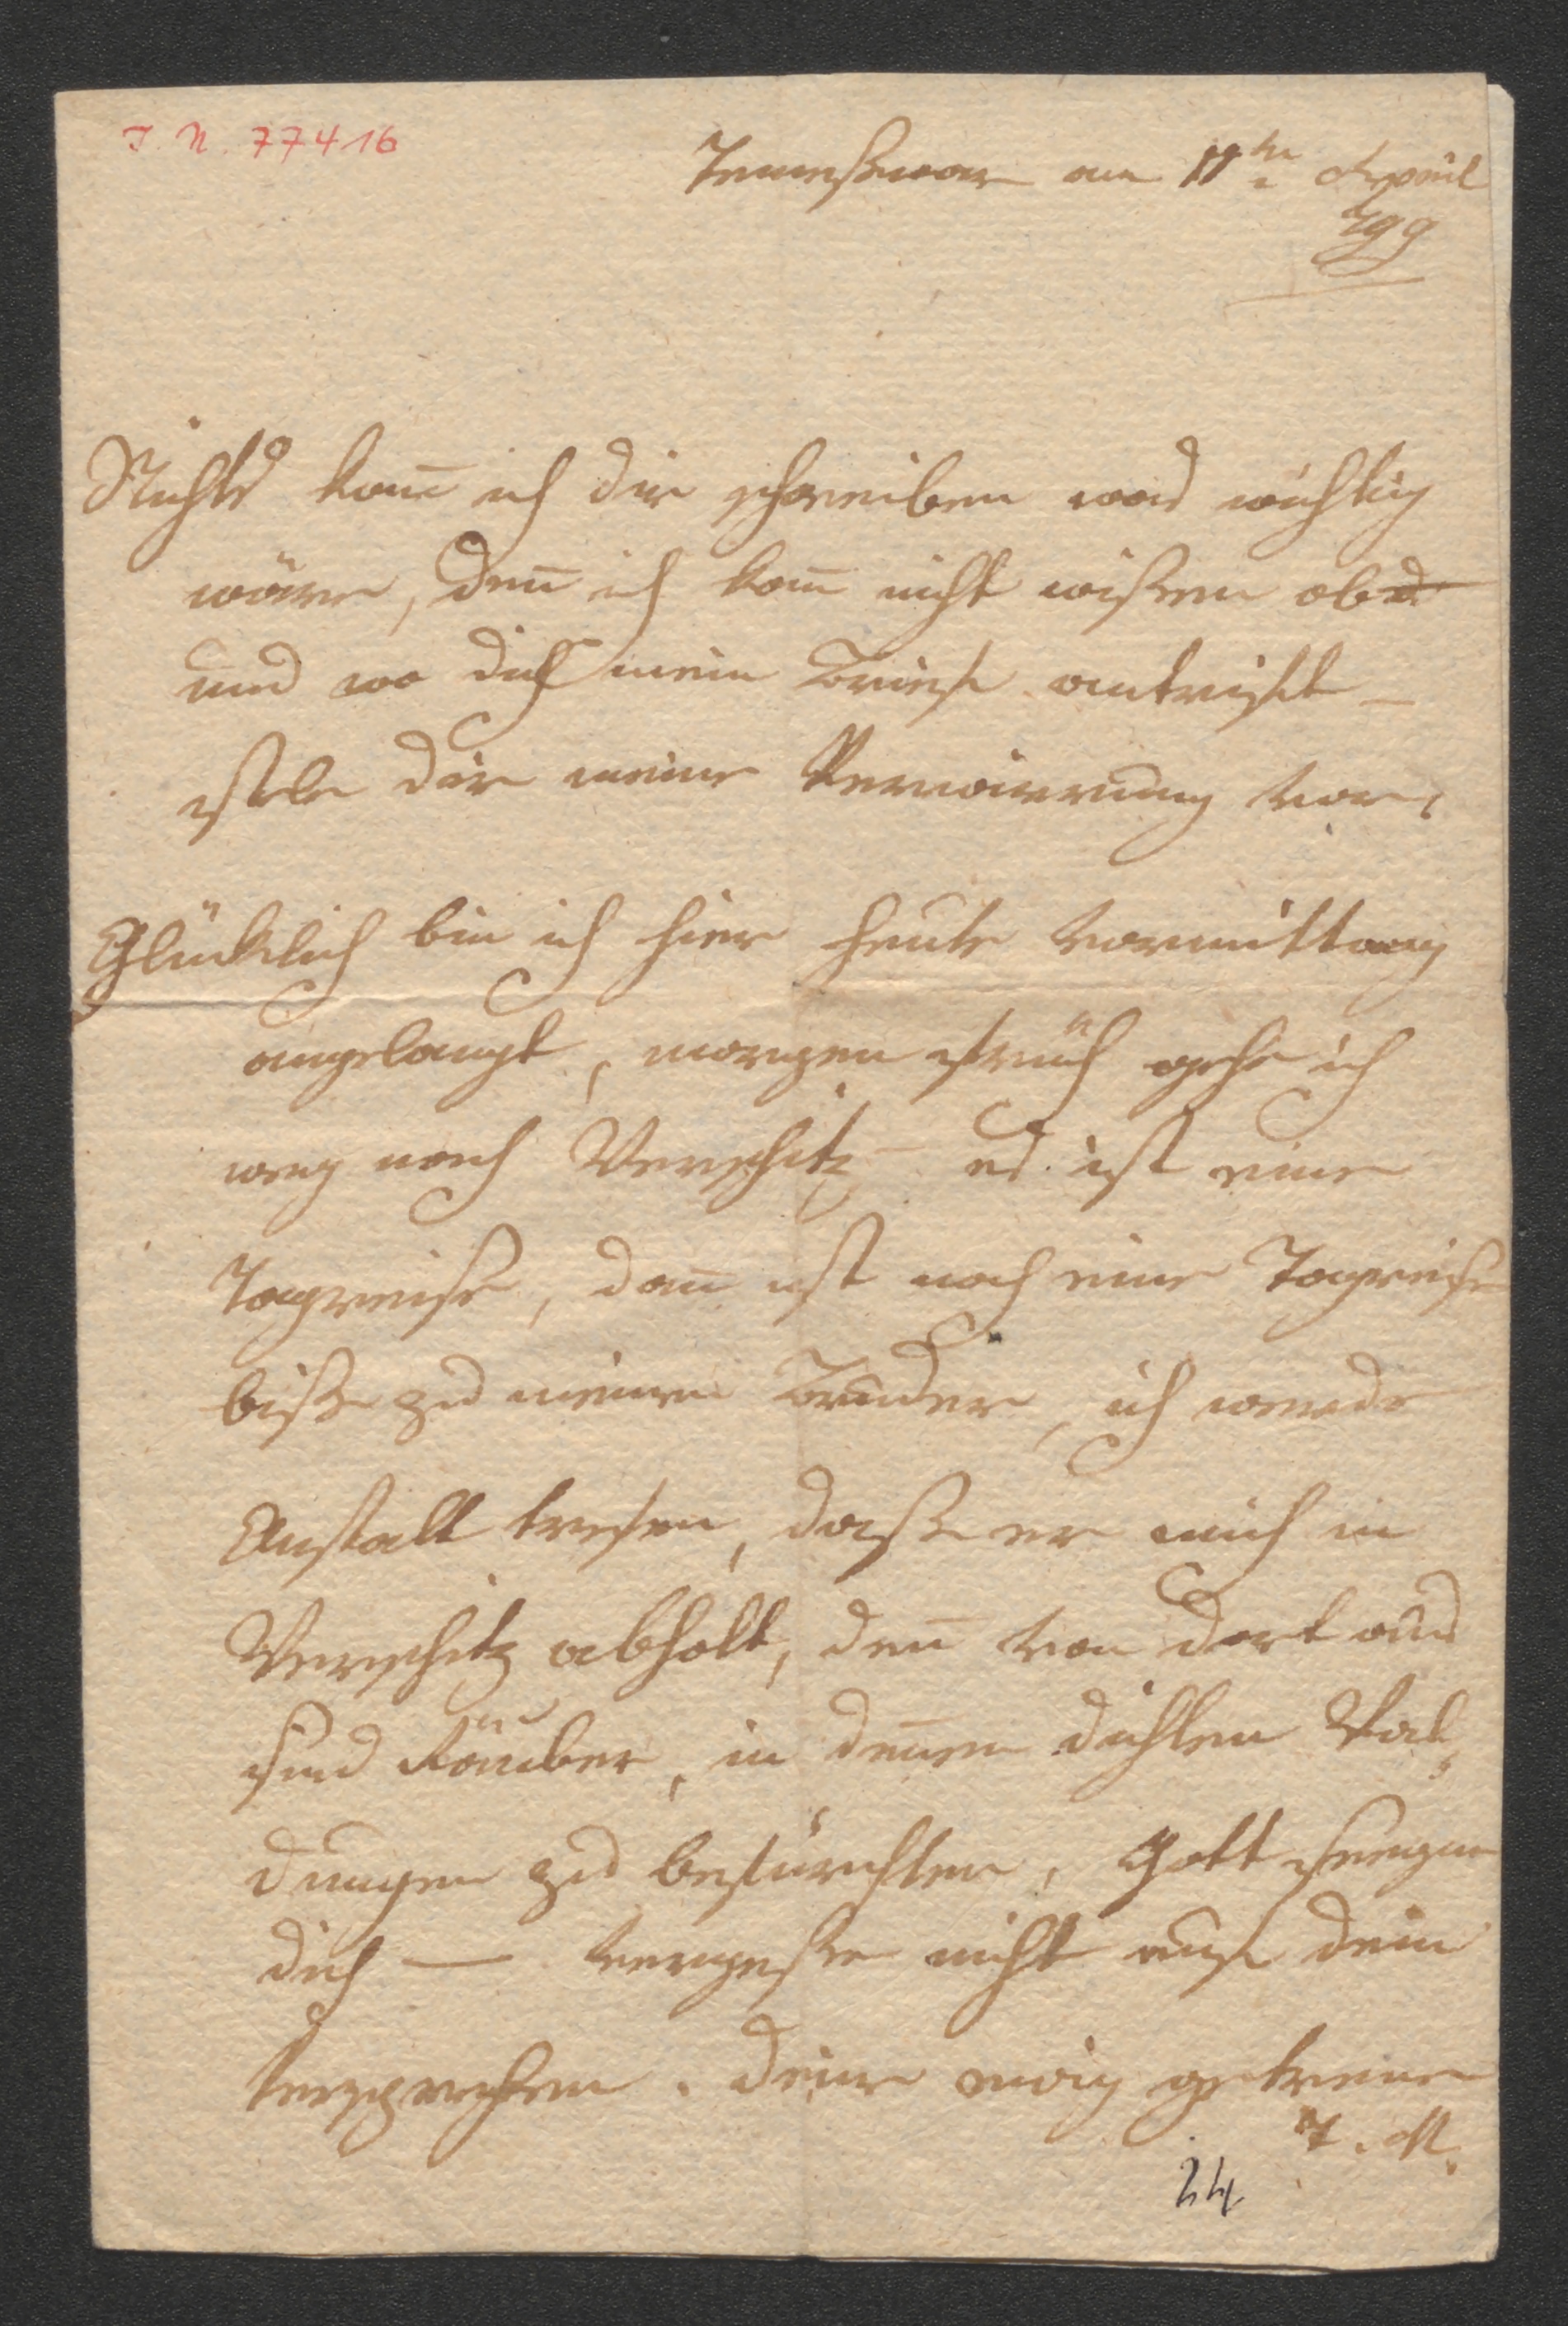 I. N. 77416
Temeßwar am 11ten April
799
Nichts kan̄ ich dir schreiben was wichtig
wäre, den̄ ich kan̄ nicht wißen ob
und wo dich mein Brief antrift —
stele dir meine Verwirrung vor,
Glücklich bin ich hier heute vormittag
angelangt, morgen früh gehe ich
weg nach Verschitz — es ist eine
Tagreise, dan̄ ist noch eine Tagreise
biß zu meinen Bruder, ich werde
Anstalt trefen, daß er mich in
Verschitz abholt, den̄ von dort aus
sind Räuber, in denen dichten Wal„
dungen zu befürchten, Gott seegne
dich — vergeße nicht auf dein
versprechen. deine ewig getreue
T. M.
24